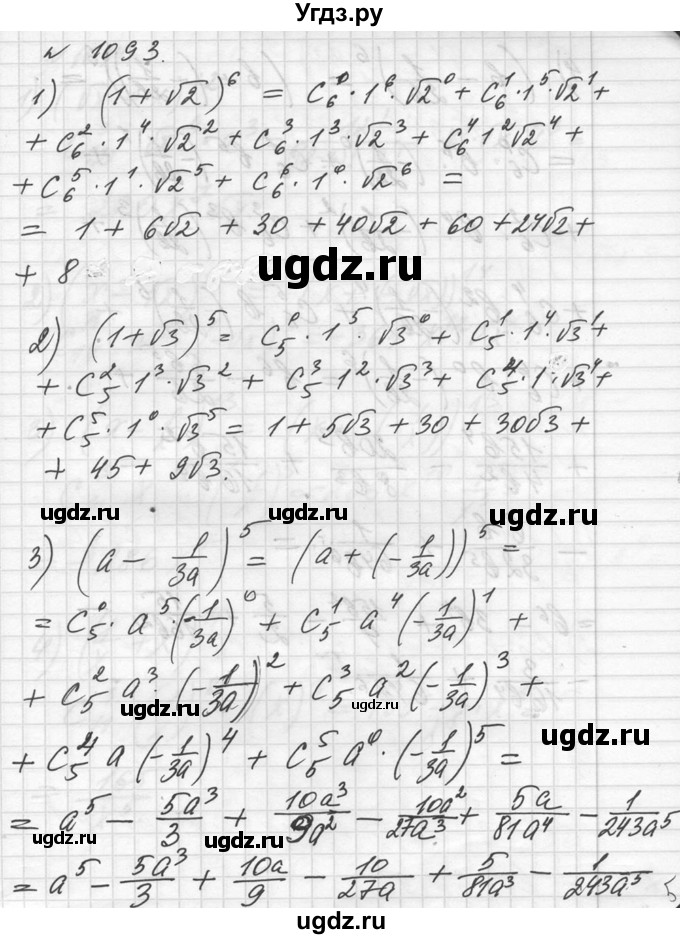 Угдз.ру
№ 1093.
1) (1 + √2)^6 = C_6^0 · 1^6 · √2^0 + C_6^1 · 1^5 · √2^1 +
+ C_6^2 · 1^4 · √2^2 + C_6^3 · 1^3 · √2^3 + C_6^4 1^2 √2^4 +
+ C_6^5 · 1^1 · √2^5 + C_6^6 · 1^0 · √2^6 =
= 1 + 6√2 + 30 + 40√2 + 60 + 24√2 +
+ 8
ugdz.ru
2) (1 + √3)^5 = C_5^0 · 1^5 · √3^0 + C_5^1 · 1^4 · √3^1 +
+ C_5^2 · 1^3 · √3^2 + C_5^3 1^2 · √3^3 + C_5^4 · 1 · √3^4 +
+ C_5^5 · 1^0 · √3^5 = 1 + 5√3 + 30 + 30√3 +
+ 45 + 9√3.
ugdz.ru ugdz.ru
3) (a - 1/3a)^5 = (a + (-1/3a))^5 =
= C_5^0 · a^5 · (-1/3a)^0 + C_5^1 a^4 (-1/3a)^1 +
+ C_5^2 a^3 · (-1/3a)^2 + C_5^3 a^2 (-1/3a)^3 +
ugdz.ru ugdz.ru
+ C_5^4 a (-1/3a)^4 + C_5^5 a^0 · (-1/3a)^5 =
ugdz.ru
= a^5 - 5a^3/3 + 10a^3/9a^2 - 10a^2/27a^3 + 5a/81a^4 - 1/243a^5
ugdz.ru ugdz.ru
= a^5 - 5a^3/3 + 10a/9 - 10/27a + 5/81a^3 - 1/243a^5
ugdz.ru ugdz.ru